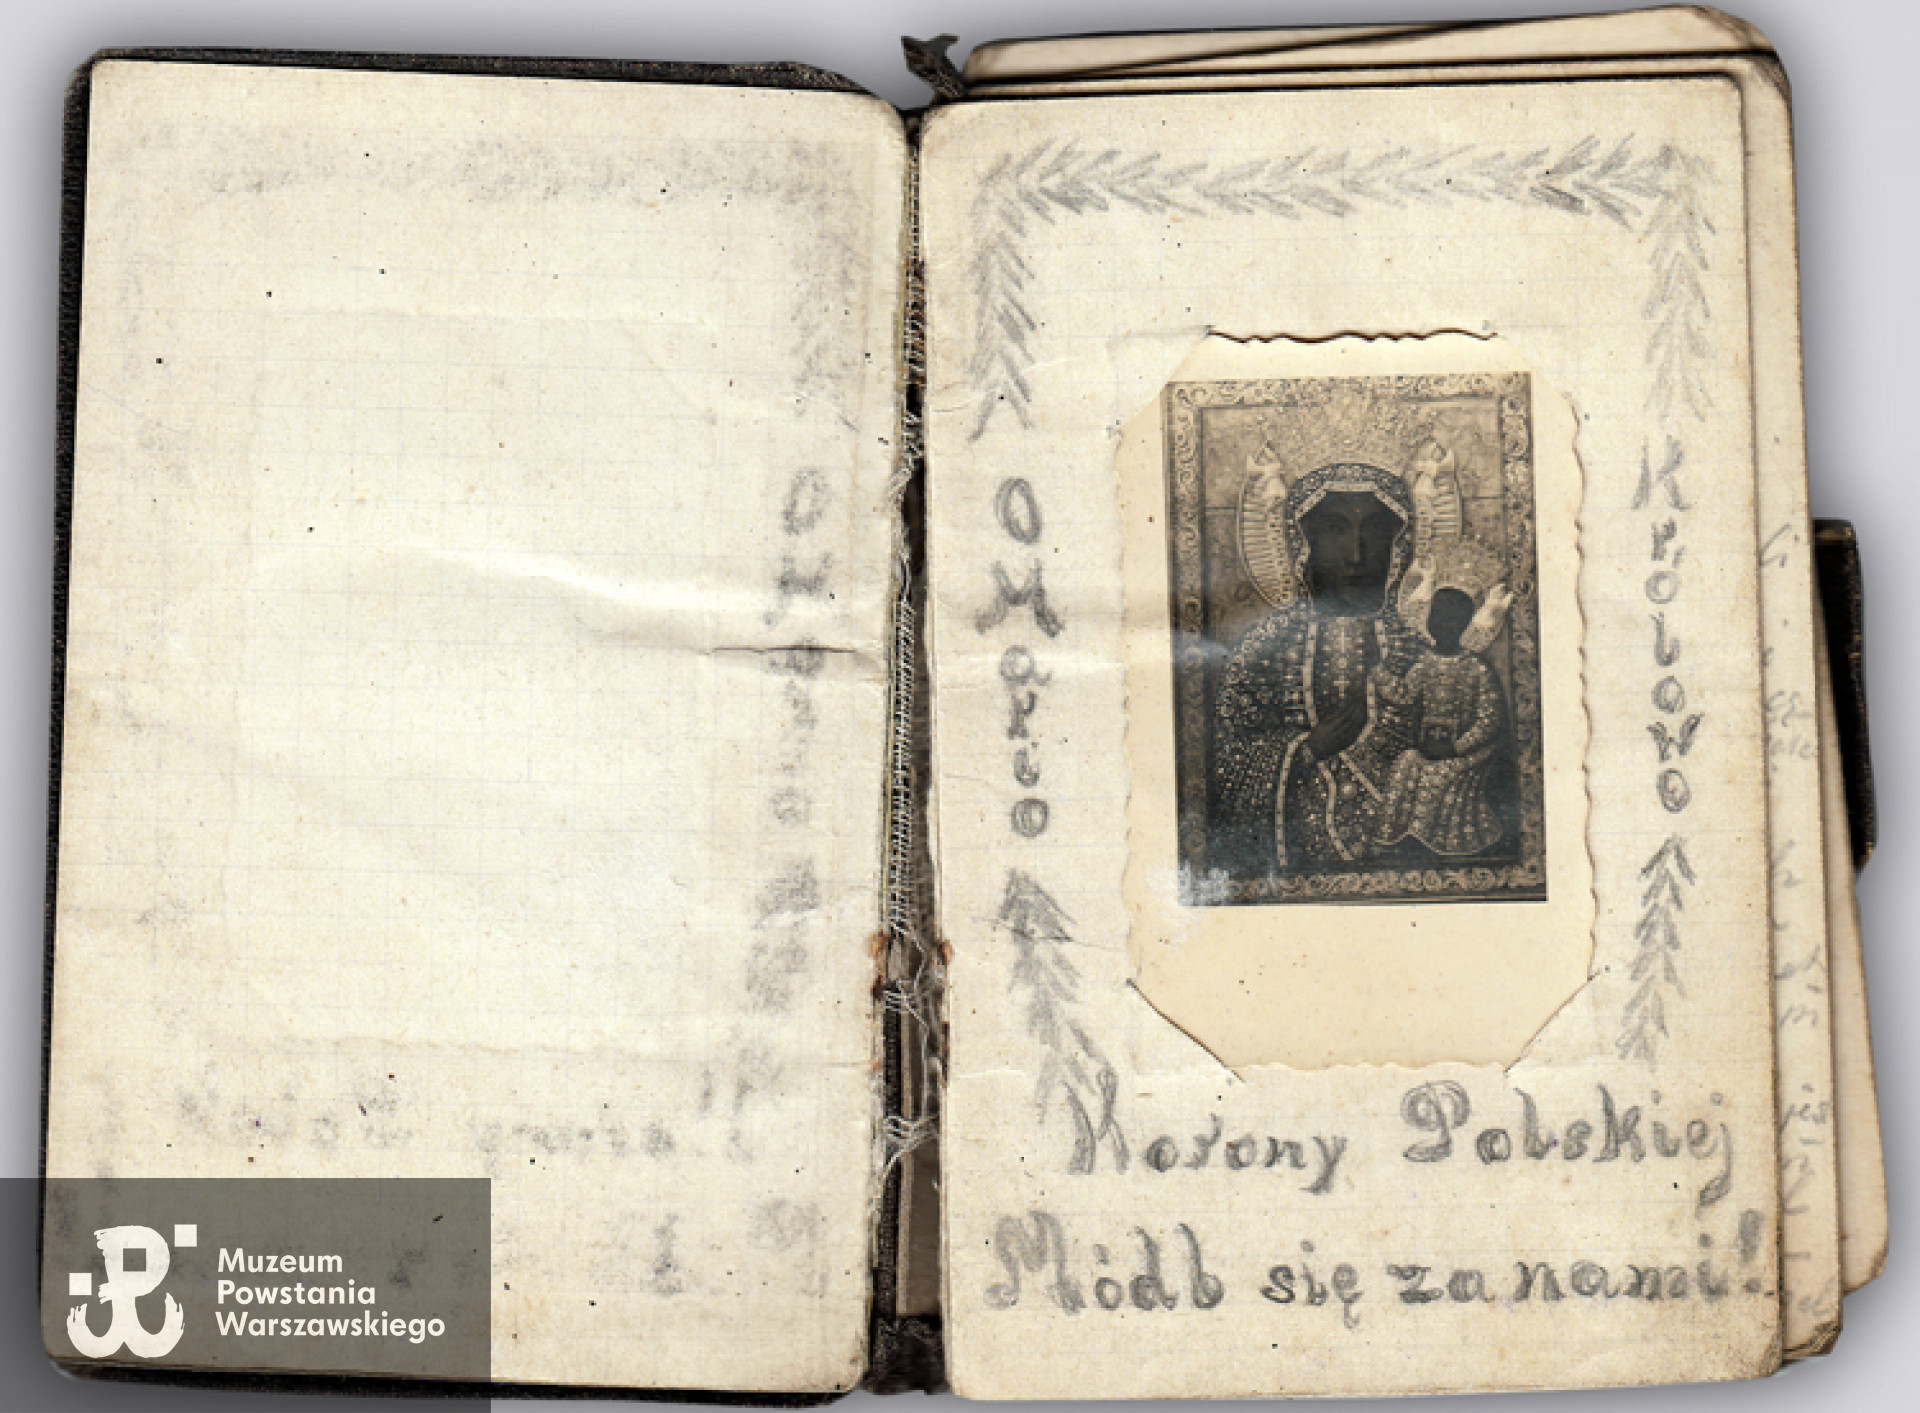 O Mario
Królowo
Korony Polskiej
Módl się za nami!
Muzeum
Powstania
Warszawskiego